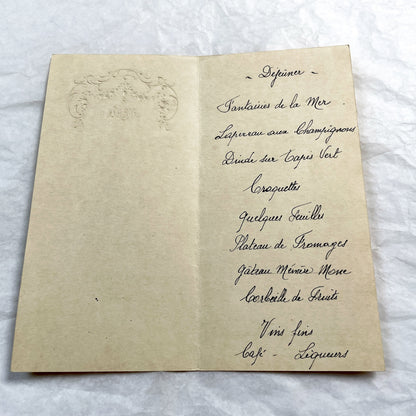 - Déjeuner -
Fantaisies de la Mer
Lapereau aux Champignons
Dinde sur Tapis Vert
Croquettes
Quelques Feuilles
Plateau de Fromages
Gâteau Mémère Mone
Corbeille de Fruits
Vins fins
Café - Liqueurs